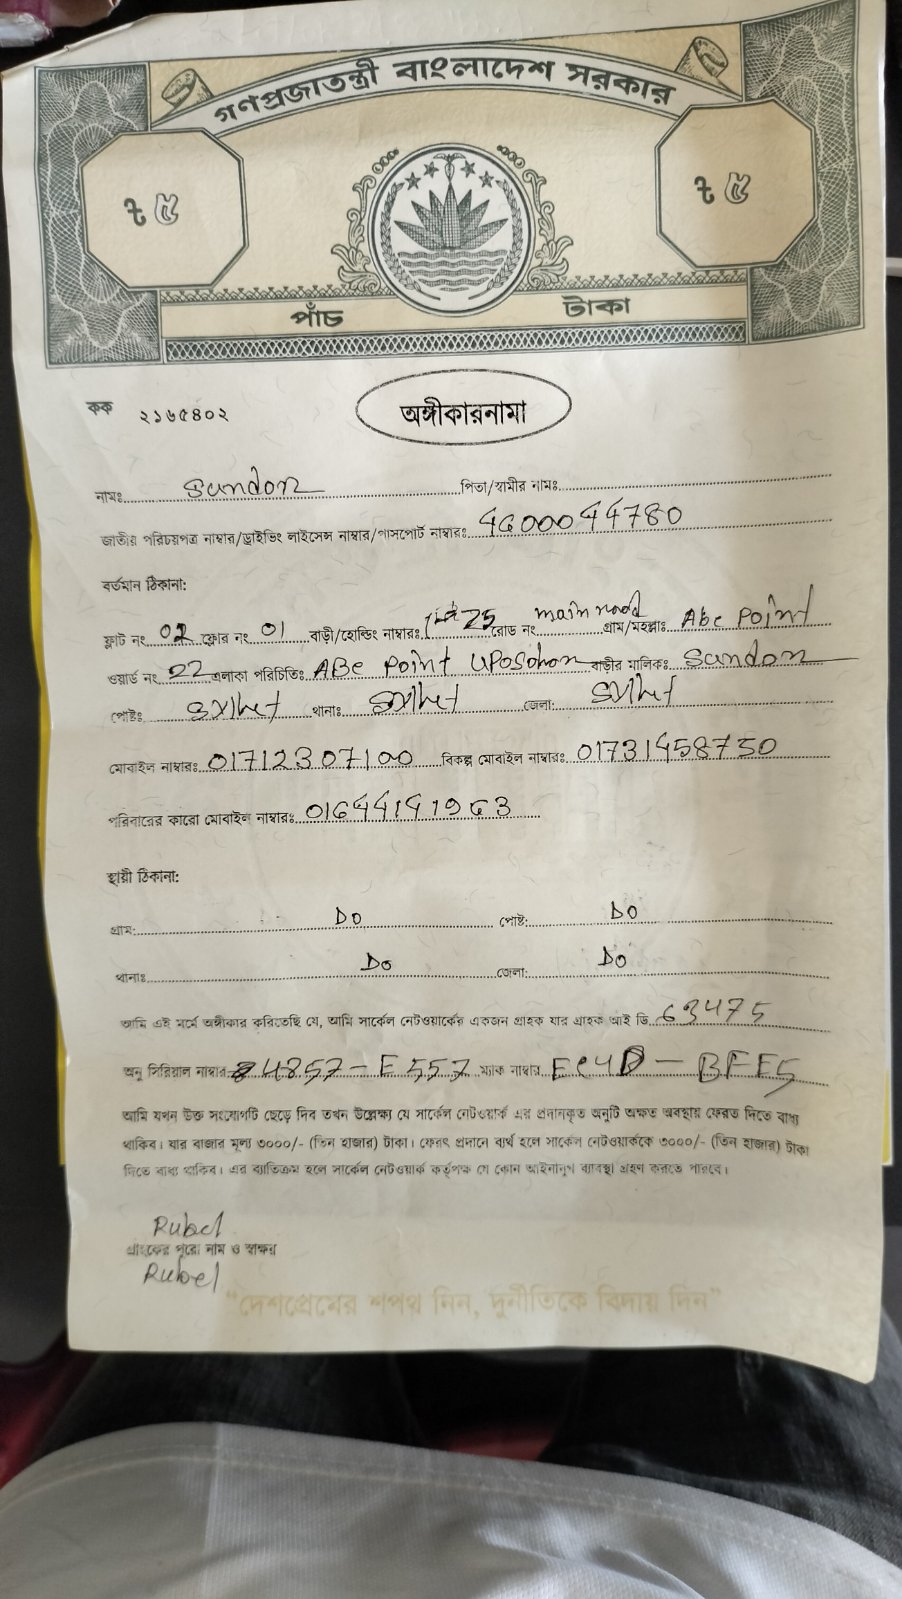 গণপ্রজাতন্ত্রী বাংলাদেশ সরকার
৳ ৫ ৳ ৫
পাঁচ টাকা
কক ২১৬৫৪০২
অঙ্গীকারনামা
নামঃ Sundon পিতা/স্বামীর নামঃ
জাতীয় পরিচয়পত্র নাম্বার/ড্রাইভিং লাইসেন্স নাম্বার/পাসপোর্ট নাম্বারঃ 4600044780
বর্তমান ঠিকানা:
ফ্লাট নং 02 ফ্লোর নং 01 বাড়ী/হোল্ডিং নাম্বারঃ 25 রোড নং main road গ্রাম/মহল্লাঃ Abc Point
ওয়ার্ড নং 22 এলাকা পরিচিতিঃ ABc Point Uposohon বাড়ীর মালিকঃ Sundon
পোষ্টঃ Sylhet থানাঃ Sylhet জেলা: Sylhet
মোবাইল নাম্বারঃ 01712307100 বিকল্প মোবাইল নাম্বারঃ 01731458750
পরিবারের কারো মোবাইল নাম্বারঃ 01644141963
স্থায়ী ঠিকানা:
গ্রাম: Do পোষ্ট: Do
থানাঃ Do জেলা: Do
আমি এই মর্মে অঙ্গীকার করিতেছি যে, আমি সার্কেল নেটওয়ার্কের একজন গ্রাহক যার গ্রাহক আই ডি 63475
অনু সিরিয়াল নাম্বার 84857-E557 ম্যাক নাম্বার Ec4D-BFE5
আমি যখন উক্ত সংযোগটি ছেড়ে দিব তখন উল্লেক্ষ্য যে সার্কেল নেটওয়ার্ক এর প্রদানকৃত অনুটি অক্ষত অবস্থায় ফেরত দিতে বাধ্য
থাকিব। যার বাজার মূল্য ৩০০০/- (তিন হাজার) টাকা। ফেরৎ প্রদানে ব্যর্থ হলে সার্কেল নেটওয়ার্ককে ৩০০০/- (তিন হাজার) টাকা
দিতে বাধ্য থাকিব। এর ব্যতিক্রম হলে সার্কেল নেটওয়ার্ক কর্তৃপক্ষ যে কোন আইনানুগ ব্যাবস্থা গ্রহণ করতে পারবে।
Rubel
গ্রাহকের পুরো নাম ও স্বাক্ষর
Rubel
"দেশপ্রেমের শপথ নিন, দুর্নীতিকে বিদায় দিন"